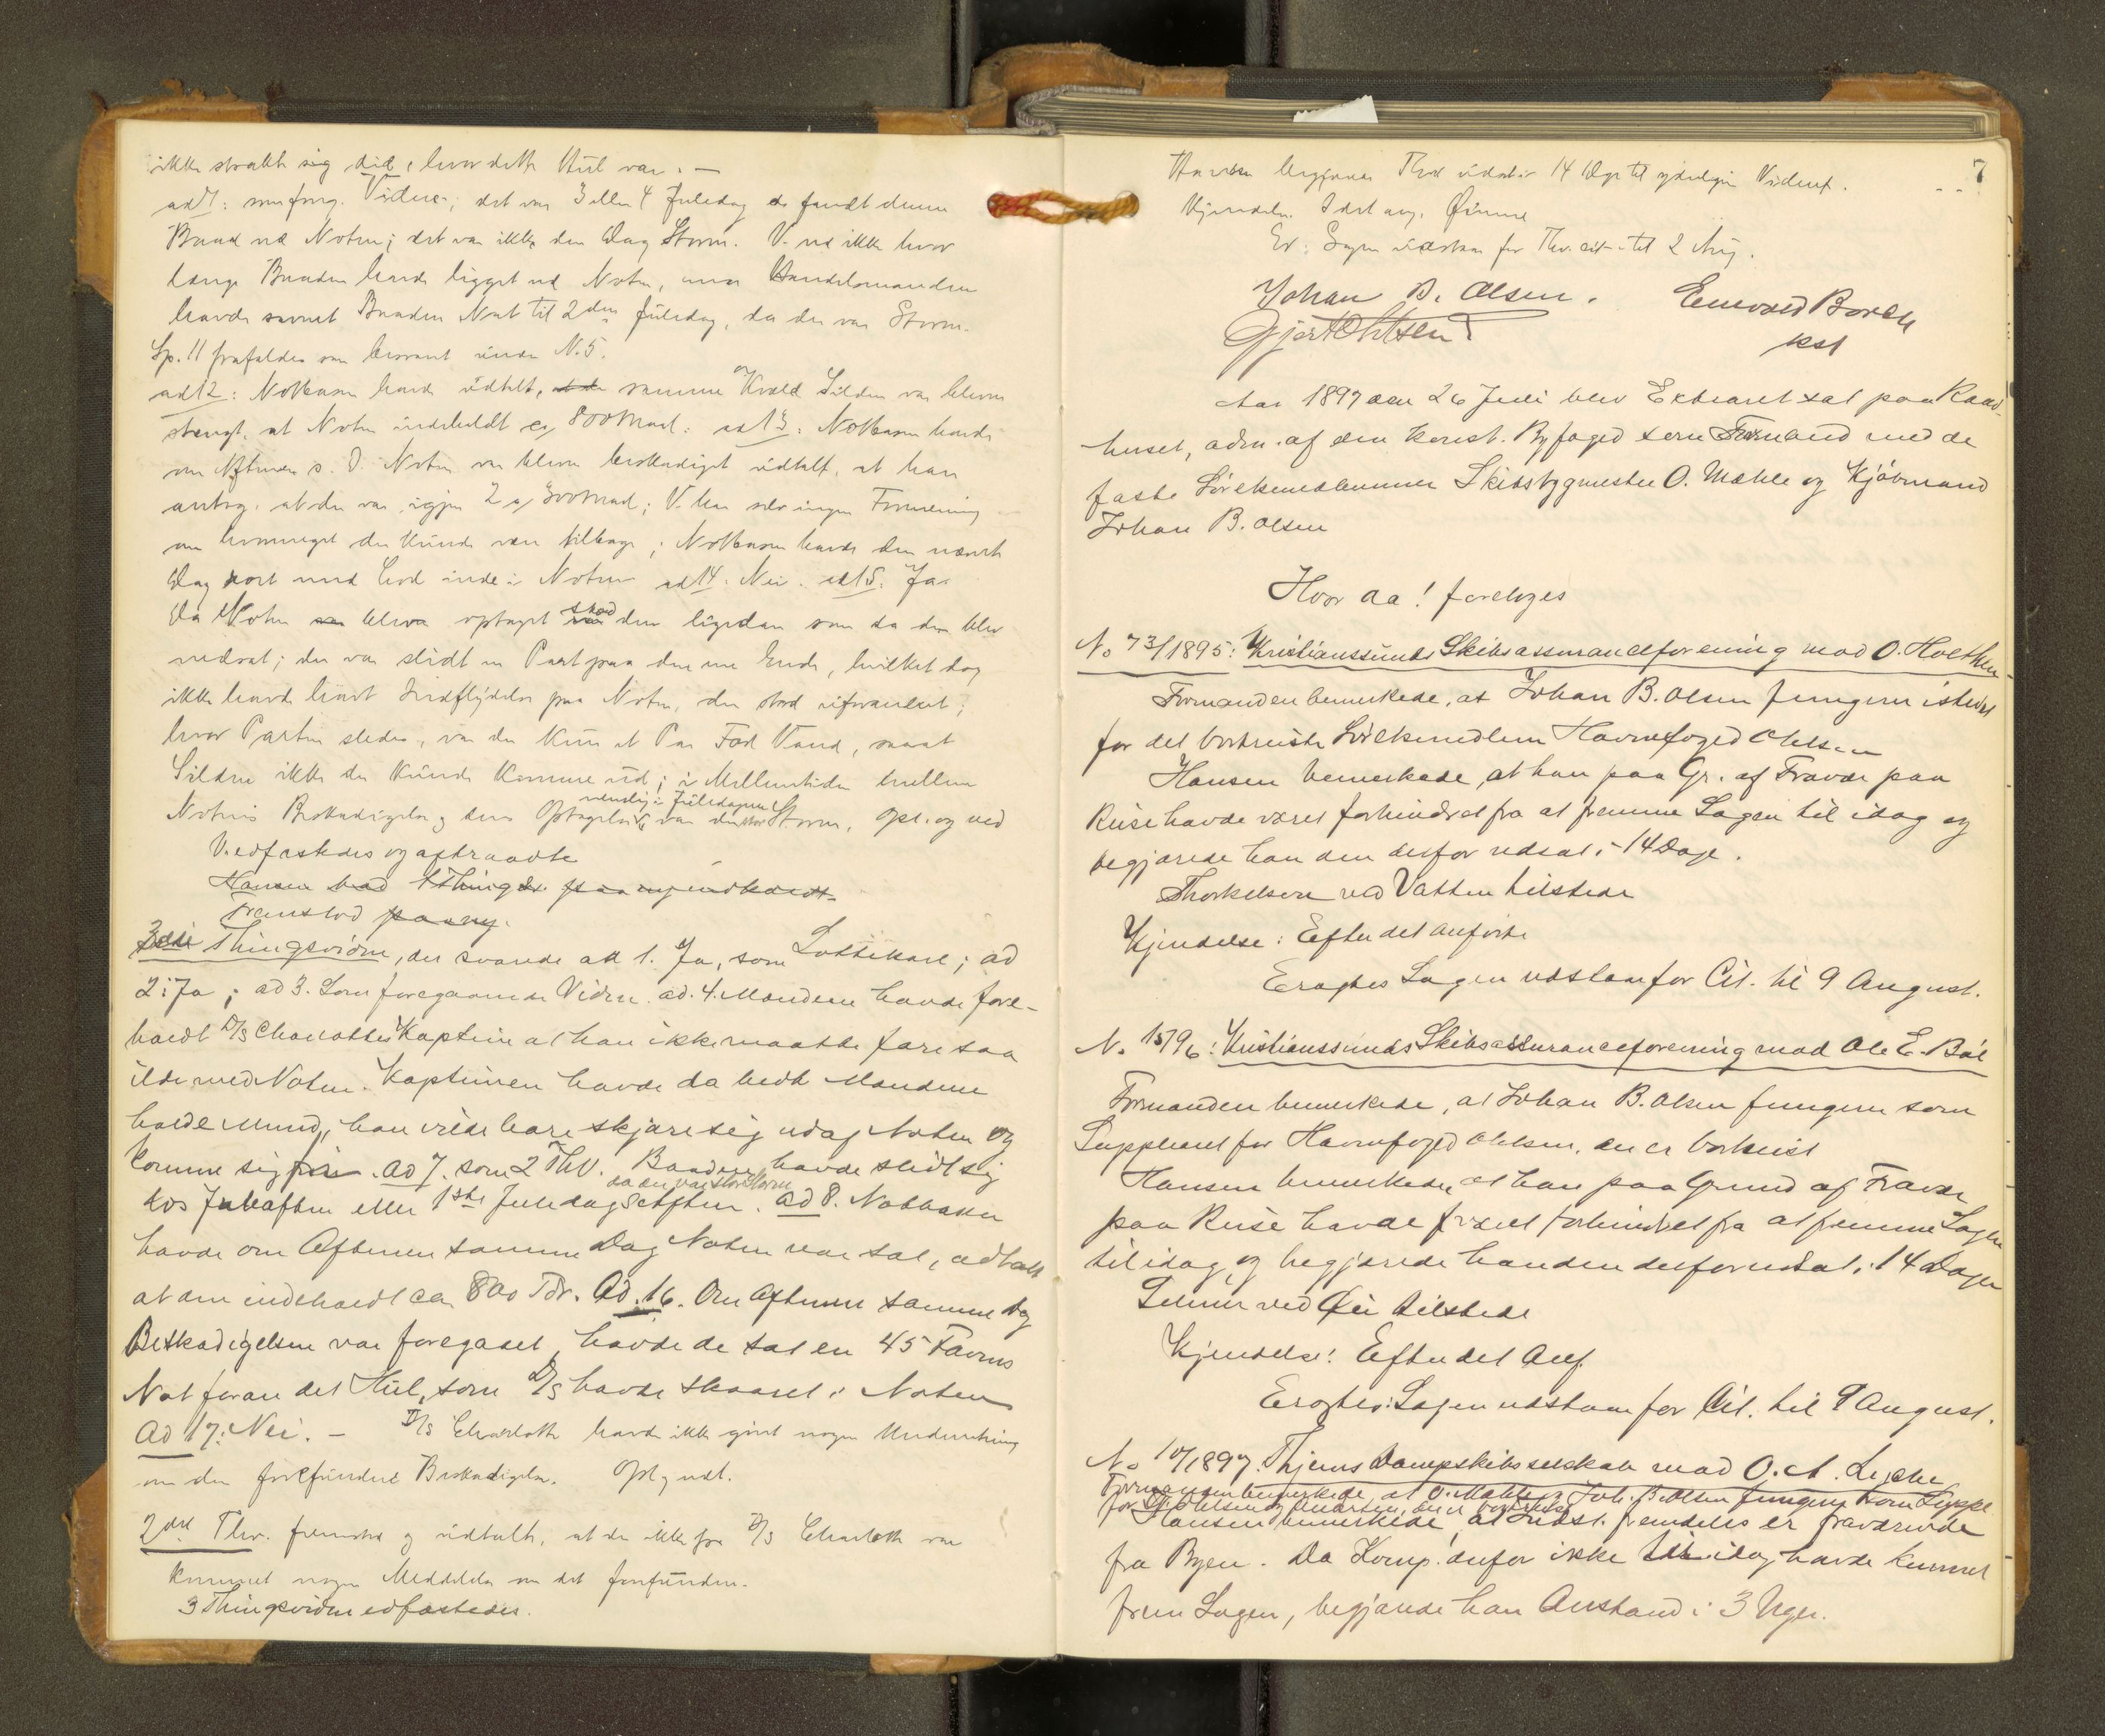 ikke strakte sig did, hvor dette Hul var. —
ad 7: som forrg. Vidne; det var 3 eller 4 Juledag de fandt denne
Baad ved Noten; det var ikke den Dag Storm. V. ved ikke hvor
længe Baaden havde ligget ved Noten, men Handelsmanden
havde savnet Baaden Nat til 2den Juledag, da der var Storm.
Sp. 11 frafaldes som besvaret under N. 5.
ad 12: Notbasen havde udtalt, samme Kvæld Silden var bleven
stængt, at Noten indeholdt ca 800 Maal. ad 13: Notbasen havde
om Aftenen s. D. Noten var bleven beskadiget udtalt, at han
antog, at der var igjen 2 a 300 Maal; V. har selv ingen Formening
om hvormeget der kunde være tilbage; Notbasen havde den næste
Dag rort med Lod inde i Noten ad 14. Nei. ad 15. Ja.
Da Noten bleve optaget stod den ligedan som da den blev
nedsat; der var slidt en Part paa den ene Ende, hvilket dog
ikke havde havt Indflydelse paa Noten, der stod uforandret;
hvor Parten sledes, var der kun et Par Fod Vand, saaat
Silden ikke der kunde komme ud; i Mellemtiden mellem
Notens Beskadigelse og dens Optagelse var der nemlig i Juledagene stor Storm. Opl. og ved
V. edfæstedes og aftraadte
Hansen bad
Fremstod paany.
3die Thingsvidne, der svarede ad 1. Ja, som Lottekarl; ad
2: Ja; ad 3. Som foregaaende Vidne. ad. 4. Mændene havde fore-
holdt D/S Charlottes Kaptein at han ikke maatte fare saa
ilde med Noten. Kapteinen havde da bedt Mændene
holde Mund, han vilde bare skjære sig ud af Noten og
komme sig fri. Ad 7. som 2 Thv. Baaden havde slidt sig
da der var stor Storm
løs Juleaften eller 1ste Juledags Aften. Ad 8. Notbasen
havde om Aftenen samme Dag Noten var sat, udtalt
at den indeholdt ca. 800 Tdr. Ad. 16. Om Aftenen samme Dag
Beskadigelsen var foregaaet, havde de sat en 45 Favns
Not foran det Hul, som D/S havde skaaret i Noten
Ad 17: Nei. — D/S Charlotte havde ikke givet nogen Underretning
om den forefundne Beskadigelse. Opl. og vedt.
2det Thv. fremstod og udtalte, at der ikke fra D/S Charlotte var
kommet nogen Meddelelse om det forefundne.
3 Thingsvidne edfæstedes.
7
Hansen begjærer Thv. udsat i 14 Dge til yderligere Vidnef.
Kjendelse. I det avg. Øiemed
Er: Sagen udstaar for Thv. cit. til 2 Aug.
Johan B. Olsen. Edvard Borch
Gjert Ohlsen kst
Aar 1897 den 26 Juli blev Extraret sat paa Raad-
huset, adm. af den konst. Byfoged som Formand med de
faste Søretsmedlemmer Skibsbygmester O. Mæhle og Kjøbmand
Johan B. Olsen
Hvor da! foretoges
No 73/1895: Kristianssunds Skibsassuranceforening mod O. Holthen
Formanden bemerkede, at Johan B. Olsen fungerer istedet
for det bortreiste Søretsmedlem Havnefoged Ohlsen
Hansen bemerkede, at han paa Gr. af Fravær paa
Reise havde været forhindret fra at fremme Sagen til idag og
begjærede han den derfor udsat i 14 Dage.
Thorkelsen ved Vatten tilstede
Kjendelse: Efter det anførte
Eragtes Sagen udstaa for Cit. til 9 August.
No 15/96: Kristianssunds Skibsassuranceforening mod Ole E. Bøe
Formanden bemerkede, at Johan B. Olsen fungerer som
Suppleant for Havnefoged Ohlsen, der er bortreist
Hansen bemerkede, at han paa Grund af Fravær
paa Reise havde været forhindret fra at fremme Sagen
til idag, og begjærede han den derfor udsat i 14 Dage
Selmer ved Øie tilstede
Kjendelse: Efter det Anf.
Eragtes: Sagen udstaa for Cit. til 9 August.
No 10/1897. Thjems Dampskibsselskab mod O. A. Lyche
Formanden bemerkede, at O. Mæhle og Joh. B. Olsen fungerer som Suppl.
for Ohlsen og der er bortreist
Hansen bemerkede, at Indst. fremdeles er fraværende
fra Byen. Da Komp. derfor ikke til idag havde kunnet
frem Sagen, begjærede han Anstand i 3 Uger.